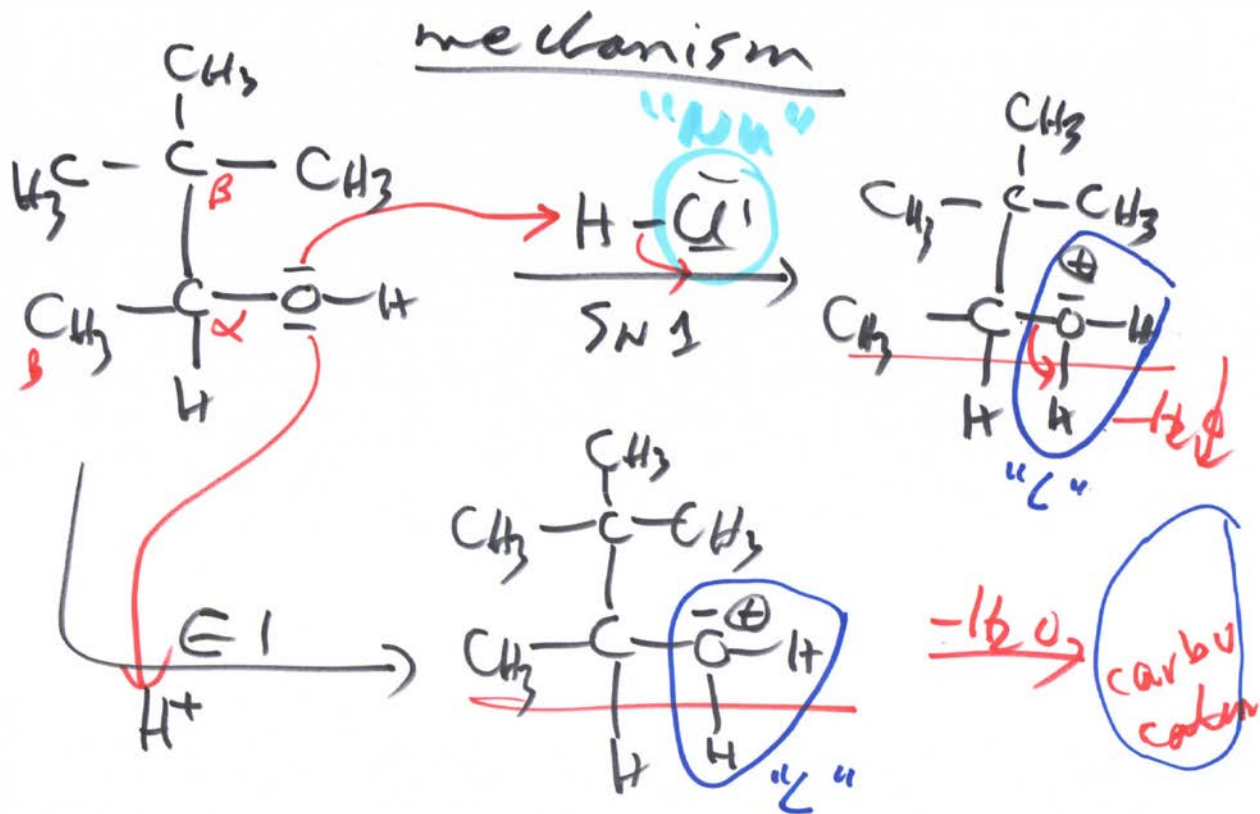 mechanism
"Nu"
CH3
H3C - C - CH3
β
H - Cl
CH3 - C - O - H
β α
H
SN1
CH3
CH3 - C - CH3
⊕
CH3 - C - O - H
H H
-H2O
"L"
E1
H+
CH3
CH3 - C - CH3
⊕
CH3 - C - O - H
H H
"L"
-H2O
carbo